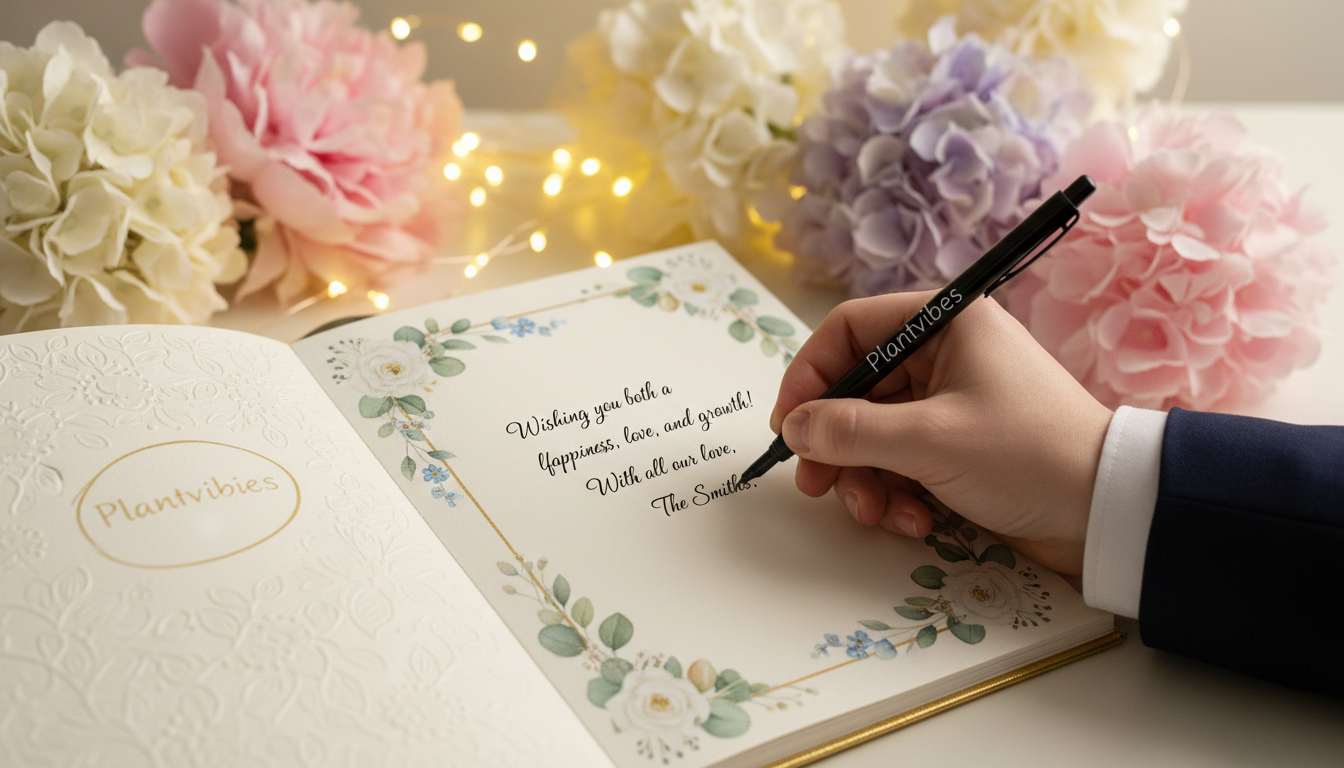 Plantvibies
Wishing you both a
lfappiness, love, and growth!
With all our love,
The Smiths.
Plantvibes